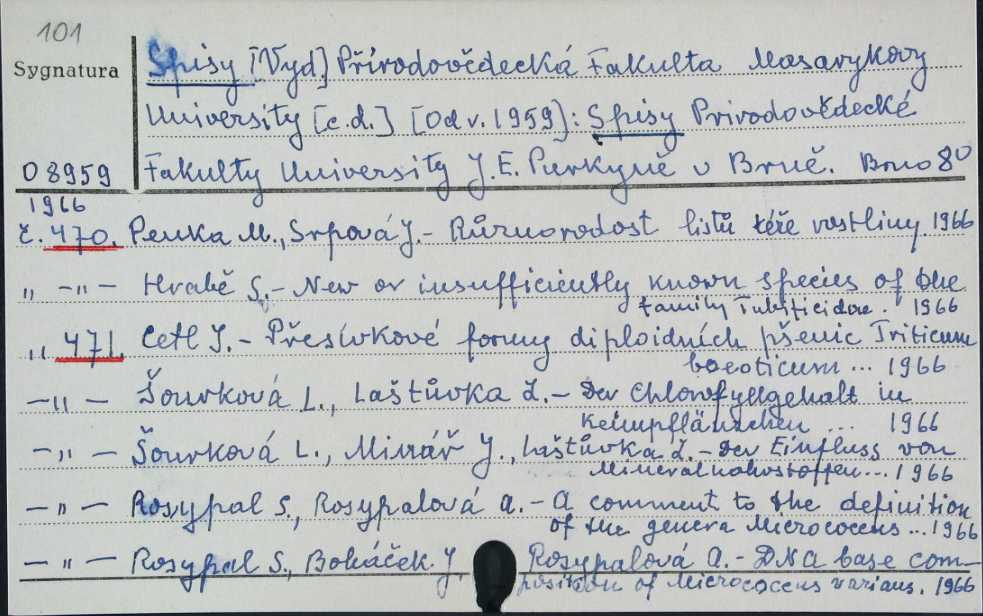 101
Sygnatura
Spisy [Vyd.] Přírodovědecká Fakulta Masarykovy
University [c.d.] [Od v. 1959]: Spisy Prirodovědecké
O 8959 Fakulty University J.E. Purkyně v Brně. Brno 8°
1966
č. 470. Penka M., Srpová J. - Různorodost listů téže rostliny. 1966
„ -„- Hrabě S. - New or insufficiently known species of the
family Tubificidae. 1966
„ 471. Cetl J. - Přesívkové formy diploidních pšenic Triticum
boeoticum ... 1966
-„- Šourková L., Laštůvka Z. - Der Chlorofyllgehalt in
Keimpflänzchen ... 1966
-„- Šourková L., Minář J., Laštůvka Z. - Der Einfluss von
Mineralnahrstoffen ... 1966
-„- Rosypal S., Rosypalová A. - A comment to the definition
of the genera Micrococcus ... 1966
-„- Rosypal S., Boháček J. Rosypalová A. - DNA base com-
position of Micrococcus varians. 1966